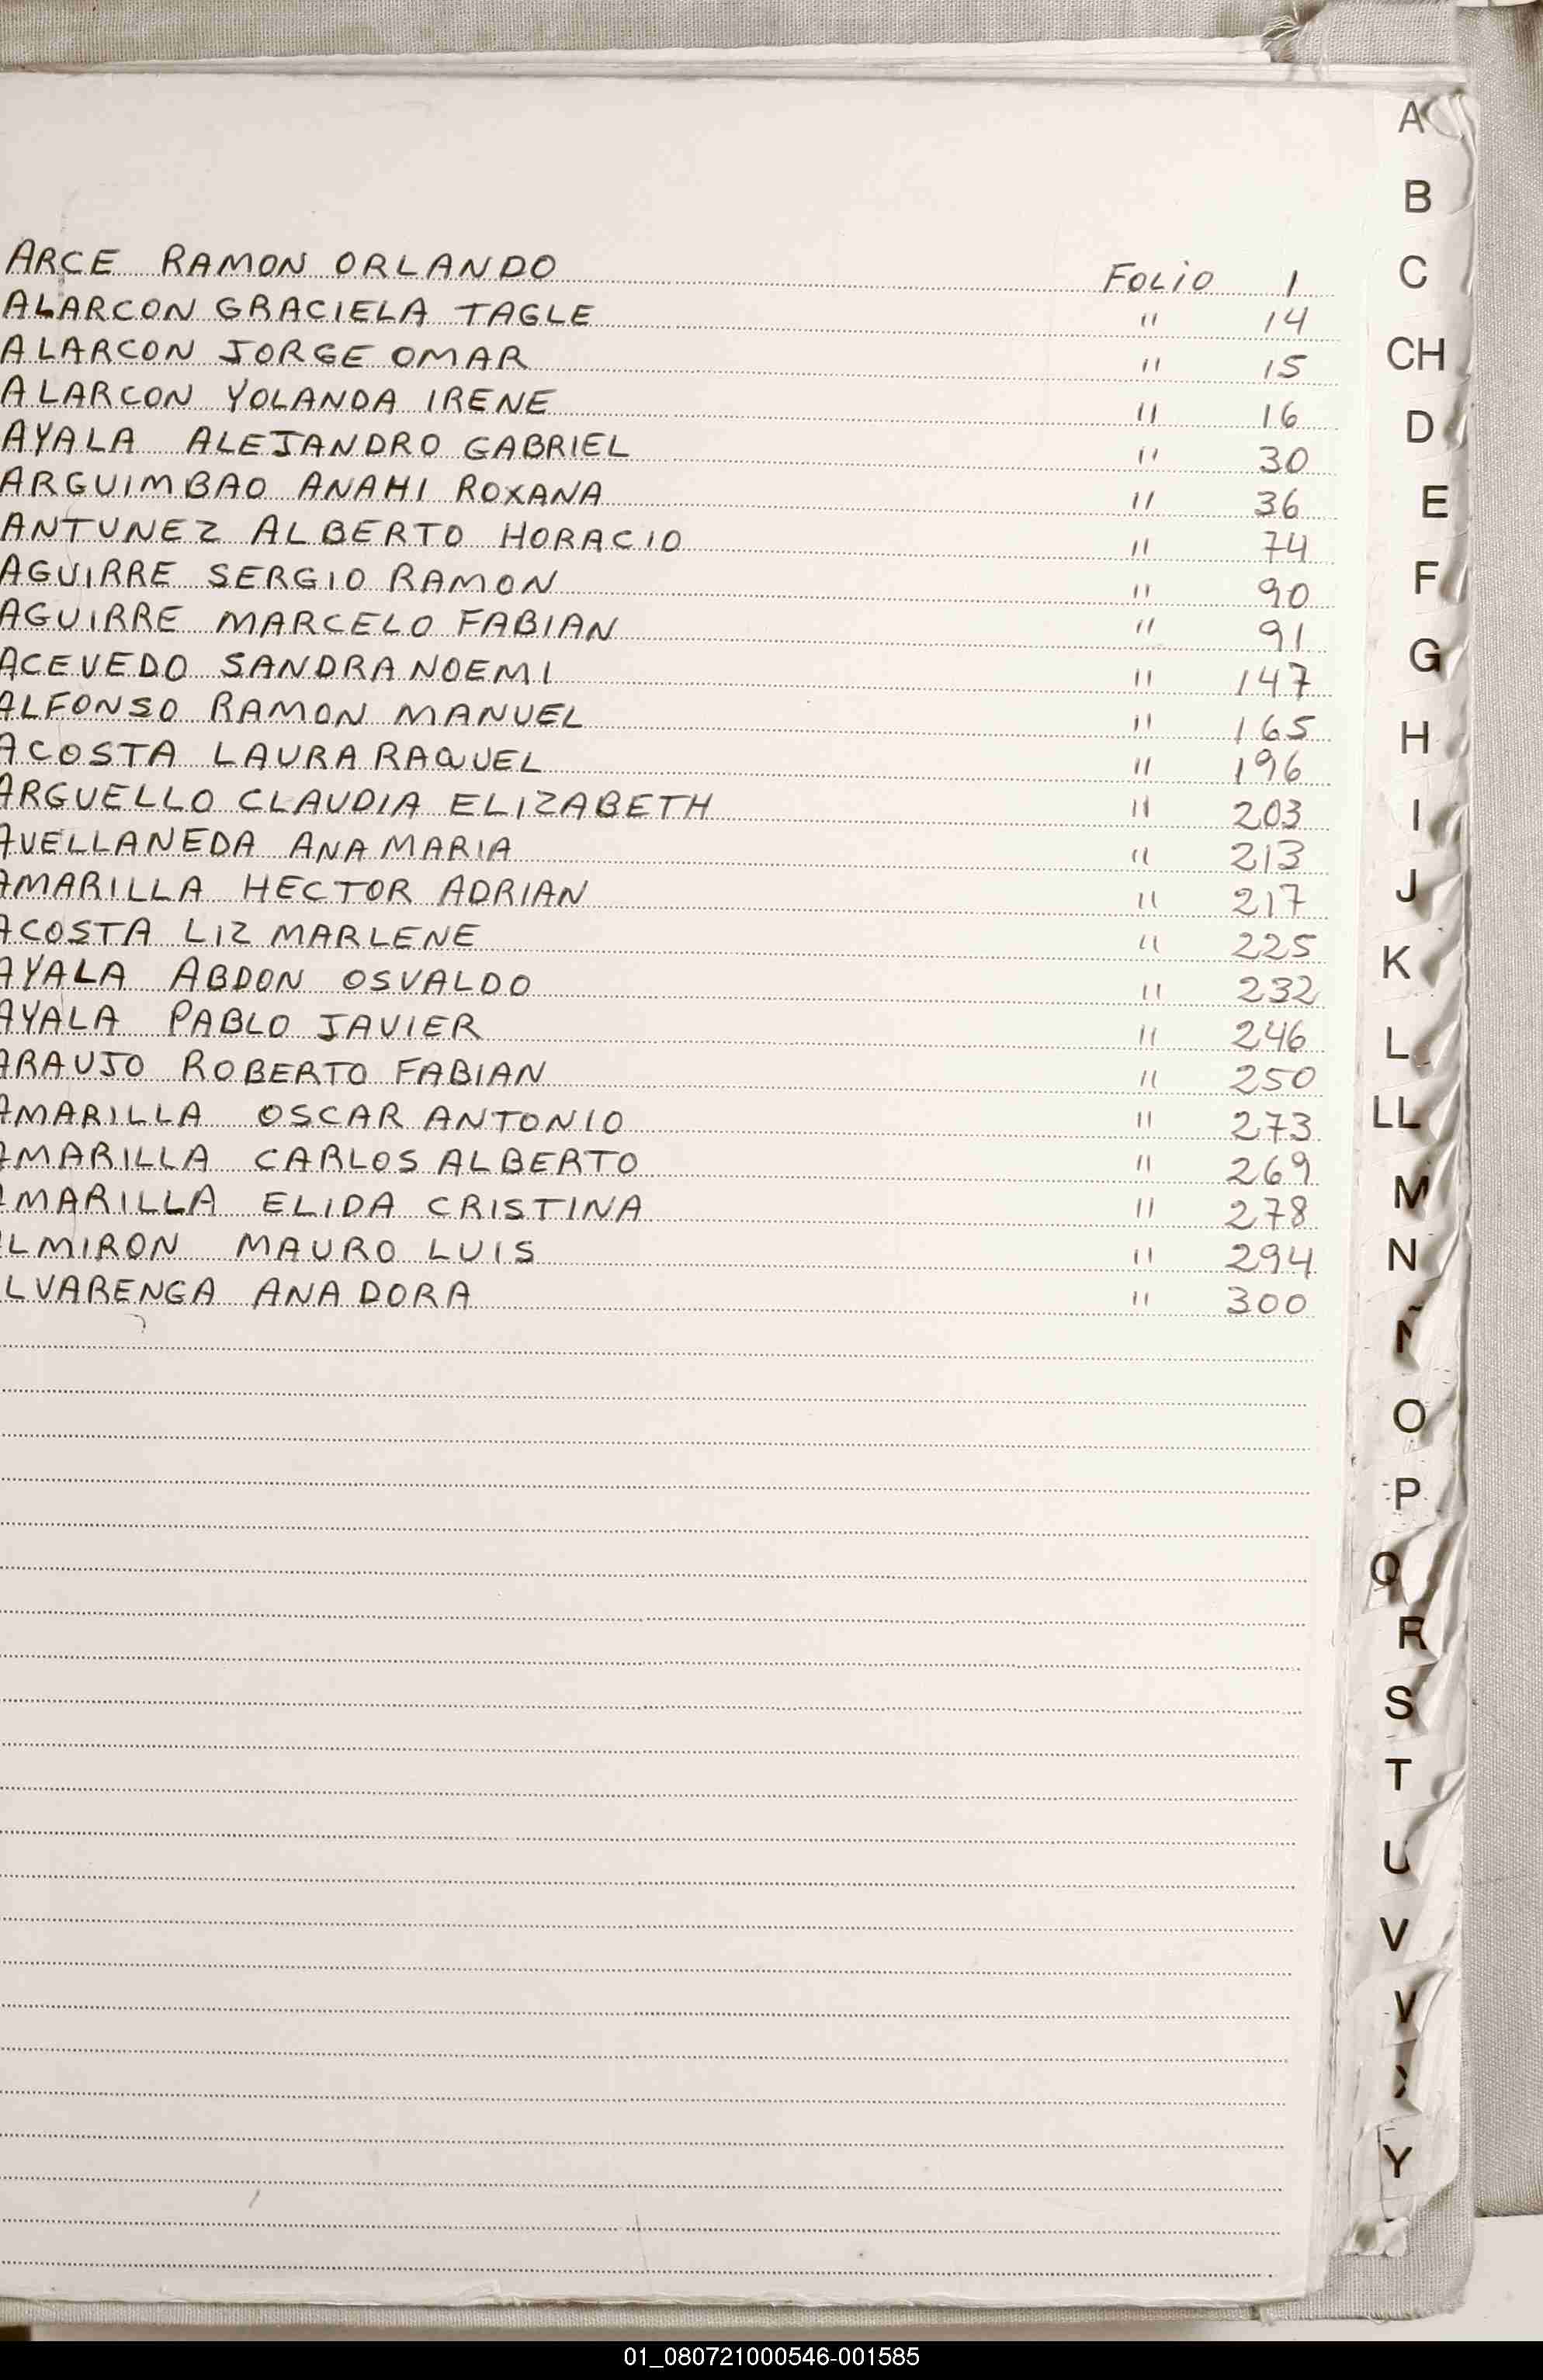 ARCE RAMON ORLANDO FOLIO 1
ALARCON GRACIELA TAGLE " 14
ALARCON JORGE OMAR " 15
ALARCON YOLANDA IRENE " 16
AYALA ALEJANDRO GABRIEL " 30
ARGUIMBAO ANAHI ROXANA " 36
ANTUNEZ ALBERTO HORACIO " 74
AGUIRRE SERGIO RAMON " 90
AGUIRRE MARCELO FABIAN " 91
ACEVEDO SANDRA NOEMI " 147
ALFONSO RAMON MANUEL " 165
ACOSTA LAURA RAQUEL " 196
ARGUELLO CLAUDIA ELIZABETH " 203
AVELLANEDA ANA MARIA " 213
AMARILLA HECTOR ADRIAN " 217
ACOSTA LIZ MARLENE " 225
AYALA ABDON OSVALDO " 232
AYALA PABLO JAVIER " 246
ARAUJO ROBERTO FABIAN " 250
AMARILLA OSCAR ANTONIO " 273
AMARILLA CARLOS ALBERTO " 269
AMARILLA ELIDA CRISTINA " 278
LMIRON MAURO LUIS " 294
LVARENGA ANA DORA " 300
A
B
C
CH
D
E
F
G
H
I
J
K
L
LL
M
N
Ñ
O
P
Q
R
S
T
U
V
Y
01_080721000546-001585